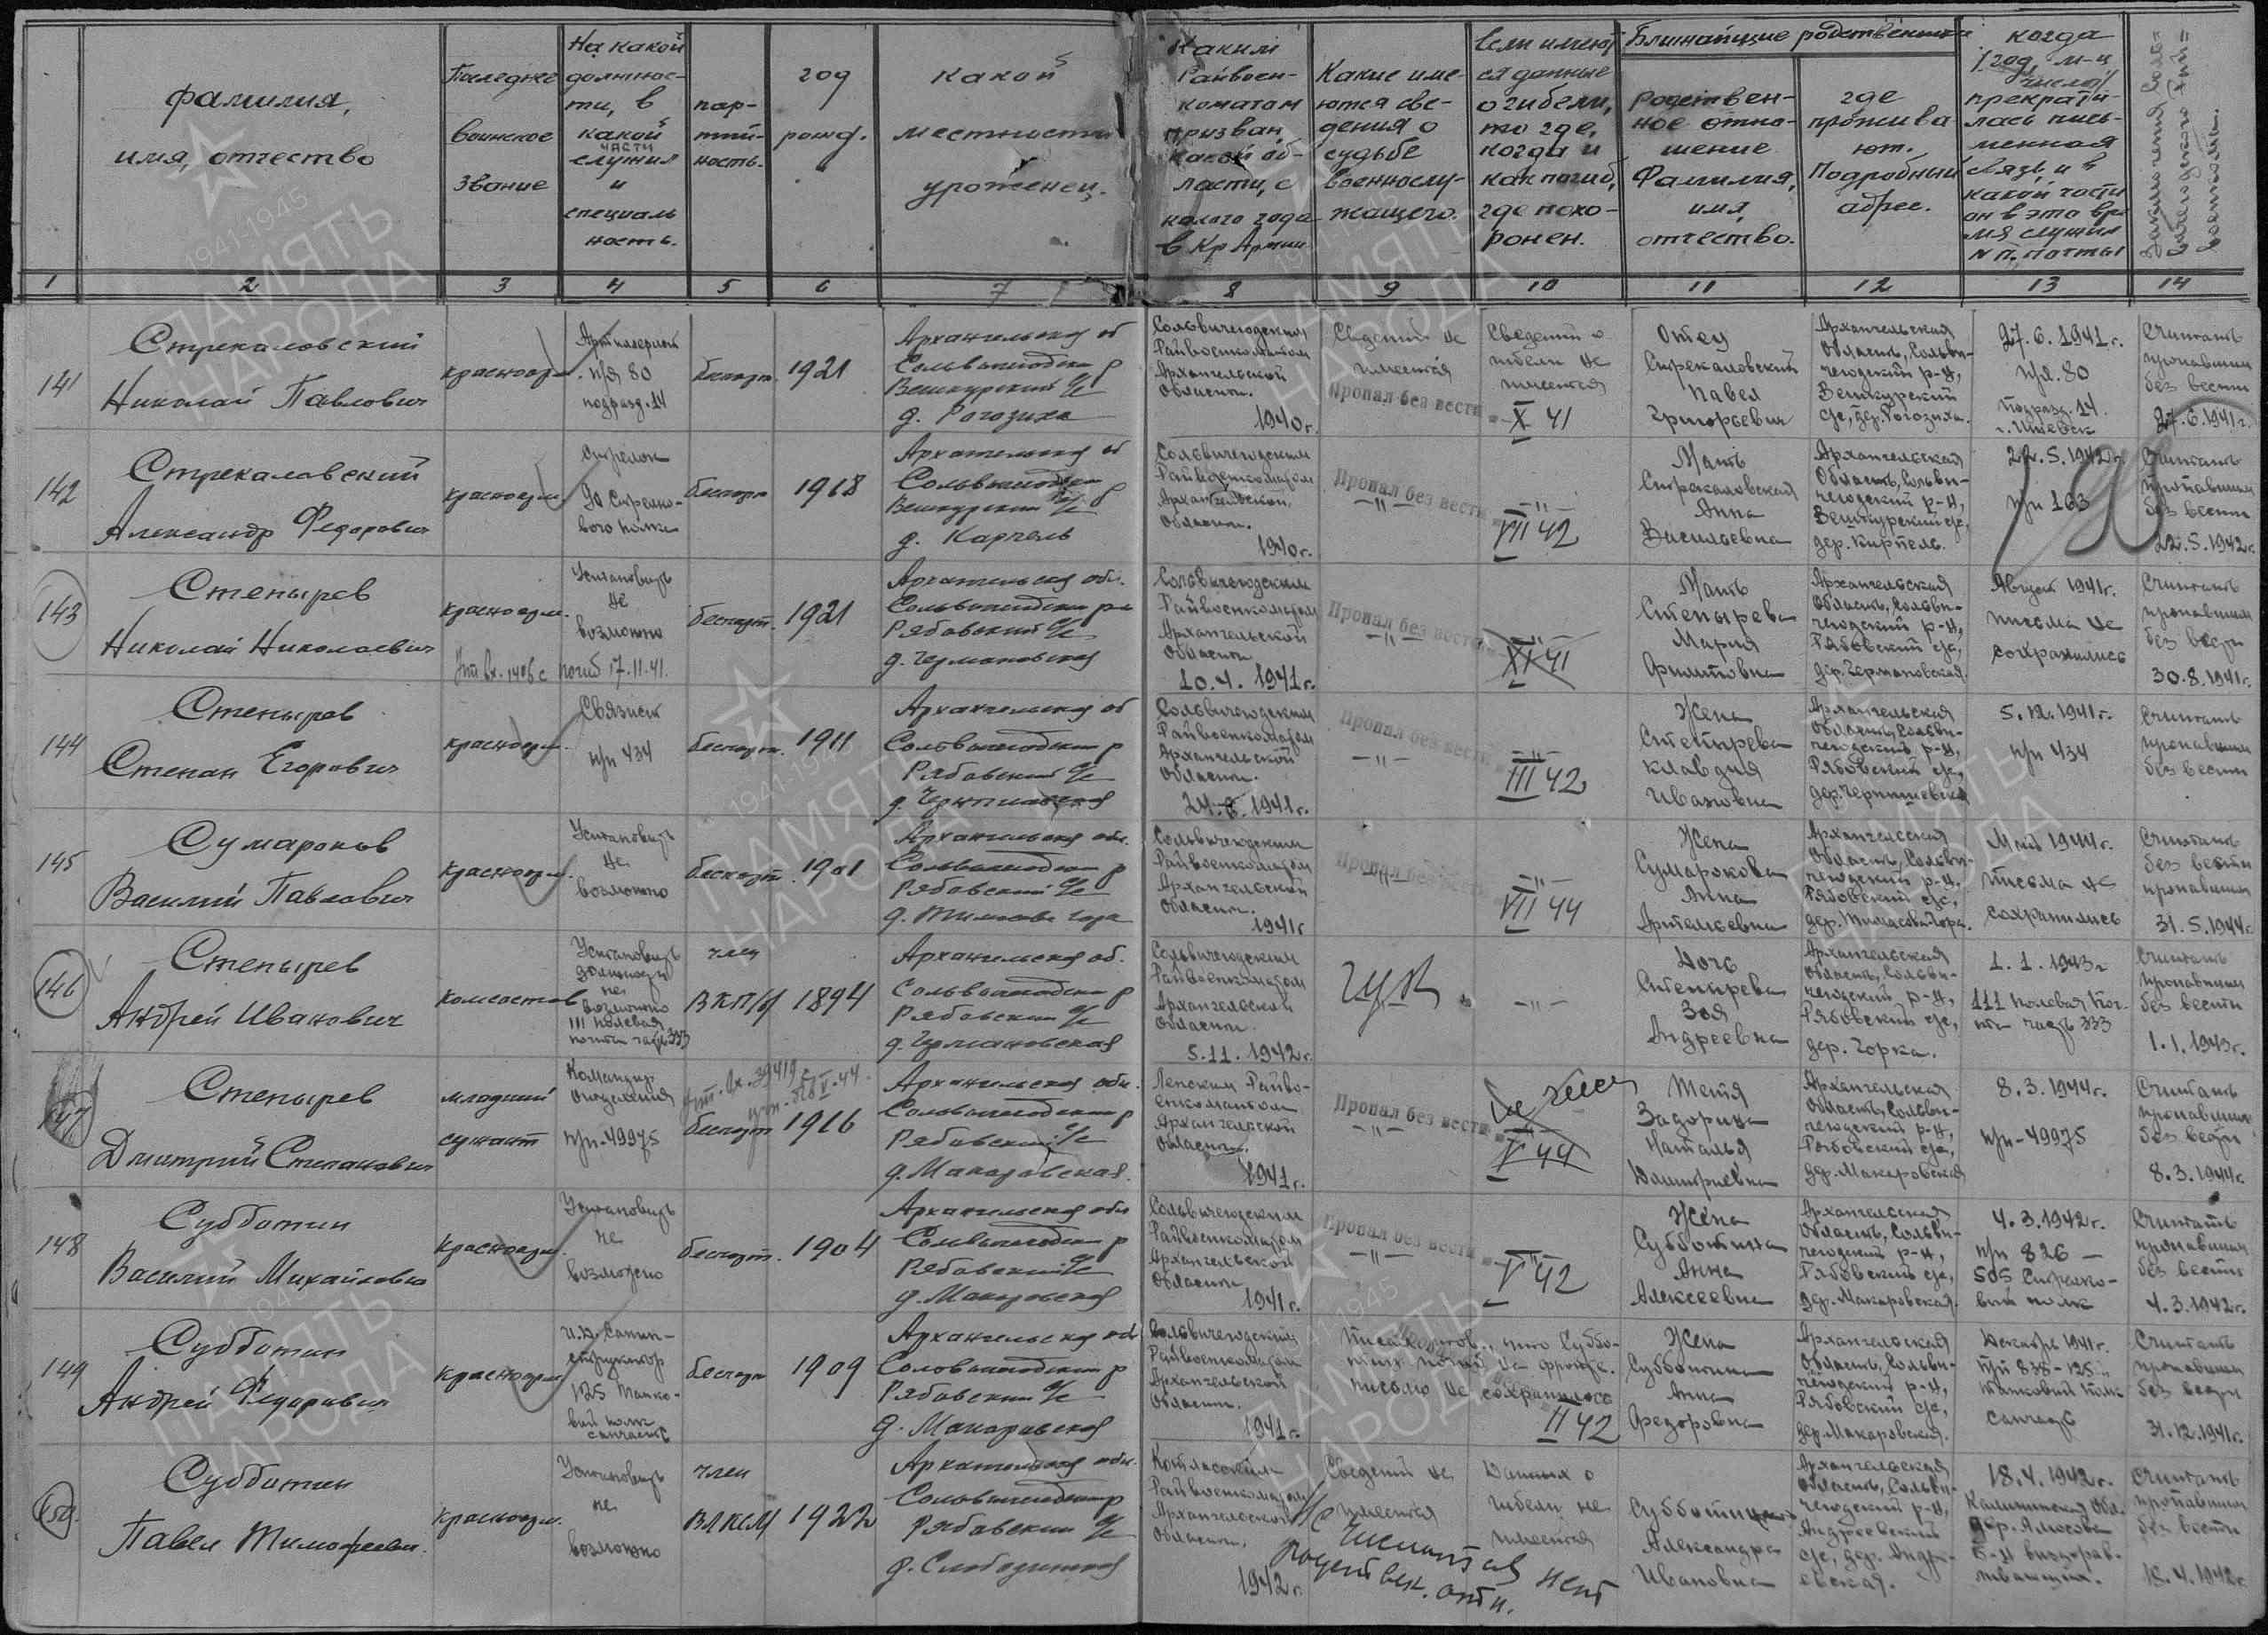 фамилия,
имя, отчество
Последнее
воинское
звание
На какой
должнос-
ти, в
какой
части
служил
и
специаль
ность.
пар-
тий-
ность.
год
рожд.
какой
местности
уроженец.
Каким
Райвоен-
коматом
призван,
какой об-
ласти, с
какого года
в Кр Армии
Какие име-
ются све-
дения о
судьбе
военнослу-
жащего.
Если имеют
ся данные
о гибели,
то где,
когда и
как погиб,
где похо-
ронен.
Ближайшие родственники
Родствен-
ное отно-
шение
Фамилия,
имя,
отчество.
где
прожива
ют.
Подробный
адрес.
когда
/год, м-ц
число/
прекрати-
лась пись-
менная
связь и в
какой части
он в это вре
мя служил
N п, почты
1 2 3 4 5 6 7 8 9 10 11 12 13 14
141
Стрекаловский
Николай Павлович
красноарм
п/я 80
подразд. 14
беспарт.
1921
Архангельская об
Сольвычегодский р
Вешкурский с/с
д. Рогозиха
Сольвичегодским
Райвоенкоматом
Архангельской
Области.
1940г.
Сведений не
имеется
Пропал без вести
Сведений о
гибели не
имеется
X 41
Отец
Стрекаловский
Павел
Григорьевич
Архангельская
Область, Сольви-
чегодский р-н,
Вешкурский
с/с, дер. Рогозиха.
27.6.1941г.
п/я. 80
Подразд. 14.
г. Ижевск
Считать
пропавшим
без вести
27.6.1941г.
142
Стрекаловский
Александр Федорович
красноарм
Стрелок
беспарт
1918
Архангельская об
Сольвычегодский р
Вешкурский с/с
д. Карпель
Сольвичегодским
Райвоенкоматом
Архангельской
Области.
1940г.
Пропал без вести
—"—
—"—
VII 42
Мать
Стрекаловская
Анна
Васильевна
Архангельская
Область, Сольви-
чегодский р-н,
Вешкурский с/с,
дер. Карпель.
22.5.1942г
п/п 163
Считать
пропавшим
без вести
22.5.1942г.
143
Степырев
Николай Николаевич
красноарм.
Установить
не
возможно
погиб 17.11.41.
беспарт.
1921
Архангельская обл.
Сольвычегодский р-н
Рябовский с/с
д. Чермановская
Сольвичегодским
Райвоенкоматом
Архангельской
Области
10.4.1941г.
Пропал без вести
—"—
—"—
XI 41
Мать
Степырева
Мария
Филипповна
Архангельская
Область, Сольви-
чегодский р-н,
Рябовский с/с,
дер. Чермановская.
Август 1941г.
письма не
сохранились
Считать
пропавшим
без вести
30.8.1941г.
144
Степырев
Степан Егорович
красноарм.
Связист
п/п 434
беспарт.
1911
Архангельская об
Сольвычегодский р
Рябовский с/с
Сольвичегодским
Райвоенкоматом
Архангельской
Области.
24.8.1941г.
Пропал без вести
—"—
—"—
III 42
Жена
Степырева
Клавдия
Ивановна
Архангельская
Область, Сольви-
чегодский р-н,
Рябовский с/с,
5.12.1941г.
п/п 434
Считать
пропавшим
без вести
145
Сумароков
Василий Павлович
красноарм.
Установить
не
возможно
беспарт.
1901
Архангельская обл.
Сольвычегодский р
Рябовский с/с
д. Тимасова Гора
Сольвичегодским
Райвоенкоматом
Архангельской
Области.
1941г
Пропал без вести
—"—
—"—
VII 44
Жена
Сумарокова
Анна
Артемьевна
Архангельская
Область, Сольви-
чегодский р-н,
Рябовский с/с,
дер. Тимасова Гора.
Май 1944г.
письма не
сохранились
Считать
без вести
пропавшим
31.5.1944г.
146
Степырев
Андрей Иванович
комсостав
Установить
должность
не
возможно
111 полевая
почта часть 333
член
ВКП/б/
1894
Архангельская об.
Сольвычегодский р
Рябовский с/с
д. Чермановская
Сольвичегодским
Райвоенкоматом
Архангельской
Области.
5.11.1942г.
—"—
Дочь
Степырева
Зоя
Андреевна
Архангельская
Область, Сольви-
чегодский р-н,
Рябовский с/с,
дер. Горка.
1.1.1943г
111 полевая поч-
та часть 333
Считать
пропавшим
без вести
1.1.1943г.
147
Степырев
Дмитрий Степанович
младший
сержант
Командир
отделения
п/п-49975
беспарт
1916
Архангельская обл.
Сольвычегодский р
Рябовский с/с
д. Макаровская.
Ленским Райво-
енкоматом
Архангельской
Области.
1941г.
Пропал без вести
—"—
V 44
Тетя
Задорина
Наталья
Дмитриевна
Архангельская
Область, Сольви-
чегодский р-н,
Рябовский с/с,
дер. Макаровская
8.3.1944г.
п/п-49975
Считать
пропавшим
без вести
8.3.1944г.
148
Субботин
Василий Михайлович
красноарм.
Установить
не
возможно
беспарт.
1904
Архангельская обл
Сольвычегодский р
Рябовский с/с
д. Макаровская
Сольвичегодским
Райвоенкоматом
Архангельской
Области
1941г.
Пропал без вести
—"—
—"—
V 42
Жена
Субботина
Анна
Алексеевна
Архангельская
Область, Сольви-
чегодский р-н,
Рябовский с/с,
дер. Макаровская.
4.3.1942г.
п/п 826 —
505 Стрелко-
вый полк
Считать
пропавшим
без вести
4.3.1942г.
149
Субботин
Андрей Федорович
красноарм
И.Д. Санин-
структор
125 Танко-
вый полк
санчасть
беспарт
1909
Архангельская обл
Сольвычегодский р
Рябовский с/с
д. Макаровская
Сольвичегодским
Райвоенкоматом
Архангельской
Области.
1941г.
что Суббо-
тин погиб на фронте.
письмо не сохранилось
II 42
Жена
Субботина
Анна
Федоровна
Архангельская
Область, Сольви-
чегодский р-н,
Рябовский с/с,
дер. Макаровская.
Декабрь 1941г.
п/п 835-125
танковый полк
санчасть
Считать
пропавшим
без вести
31.12.1941г.
150.
Субботин
Павел Тимофеевич.
красноарм.
Установить
не
возможно
член
ВЛКСМ
1922
Архангельская обл.
Сольвычегодский р
Рябовский с/с
Котласским
Райвоенкоматом
Архангельской
Области.
1942г.
Сведений не
имеется
Данных о
гибели не
имеется
Не числится
родствен. отн. нет
Субботина
Александра
Ивановна
Архангельская
Область, Сольви-
чегодский р-н,
Андреевский
с/с, дер. Андре-
евская.
18.4.1942г.
Калининская Обл.
Считать
пропавшим
без вести
18.4.1942г
1941-1945
ПАМЯТЬ
НАРОДА